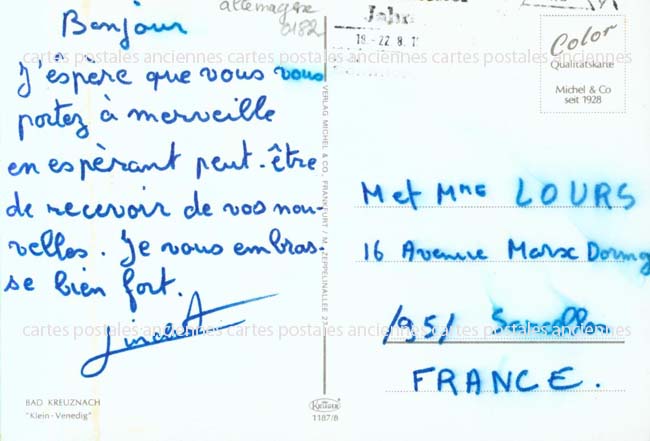 allemagne
0182
Bonjour
J'éspère que vous vous
portez à merveille
en espèrant peut-être
de recevoir de vos nou-
velles. Je vous embras-
se bien fort.
BAD KREUZNACH
"Klein-Venedig"
VERLAG MICHEL & CO., FRANKFURT / M., ZEPPELINALLEE
KRÜGER
1187/8
Jahr
19.-22 8. 1
Color
Qualitätskarte
Michel & Co
seit 1928
M et Mme LOURS
16 Avenue Marx Dormoy
/95/ Sarcelles
FRANCE.
cartes postales anciennes cartes postales anciennes cartes postales anciennes
cartes postales anciennes cartes postales anciennes cartes postales anciennes